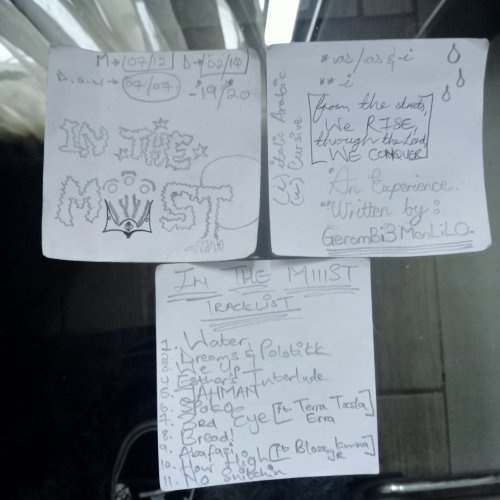 M→ [07/12] D→ 02/14
D.O.W→ 07/07 - 19/20
IN THE
M ST
* as/as & -i
** -i
(i) italic Arabic
(ii) Cursive
from the streets,
We RISE,
through the Lord,
WE CONQUER
*An Experience.
**Written by:
GeromBi3 MenLiLO.
IN THE MIIIST
TRACKLIST
1. Water
2. Dreams & Polotikk
3.
4. Esther's Interlude
5. YAHMAN
6. Poko
7. 3rd Eye [Ft. Terra Tesla Erra]
8. Bread!
9.
10. How High [Ft
11. No Switchin